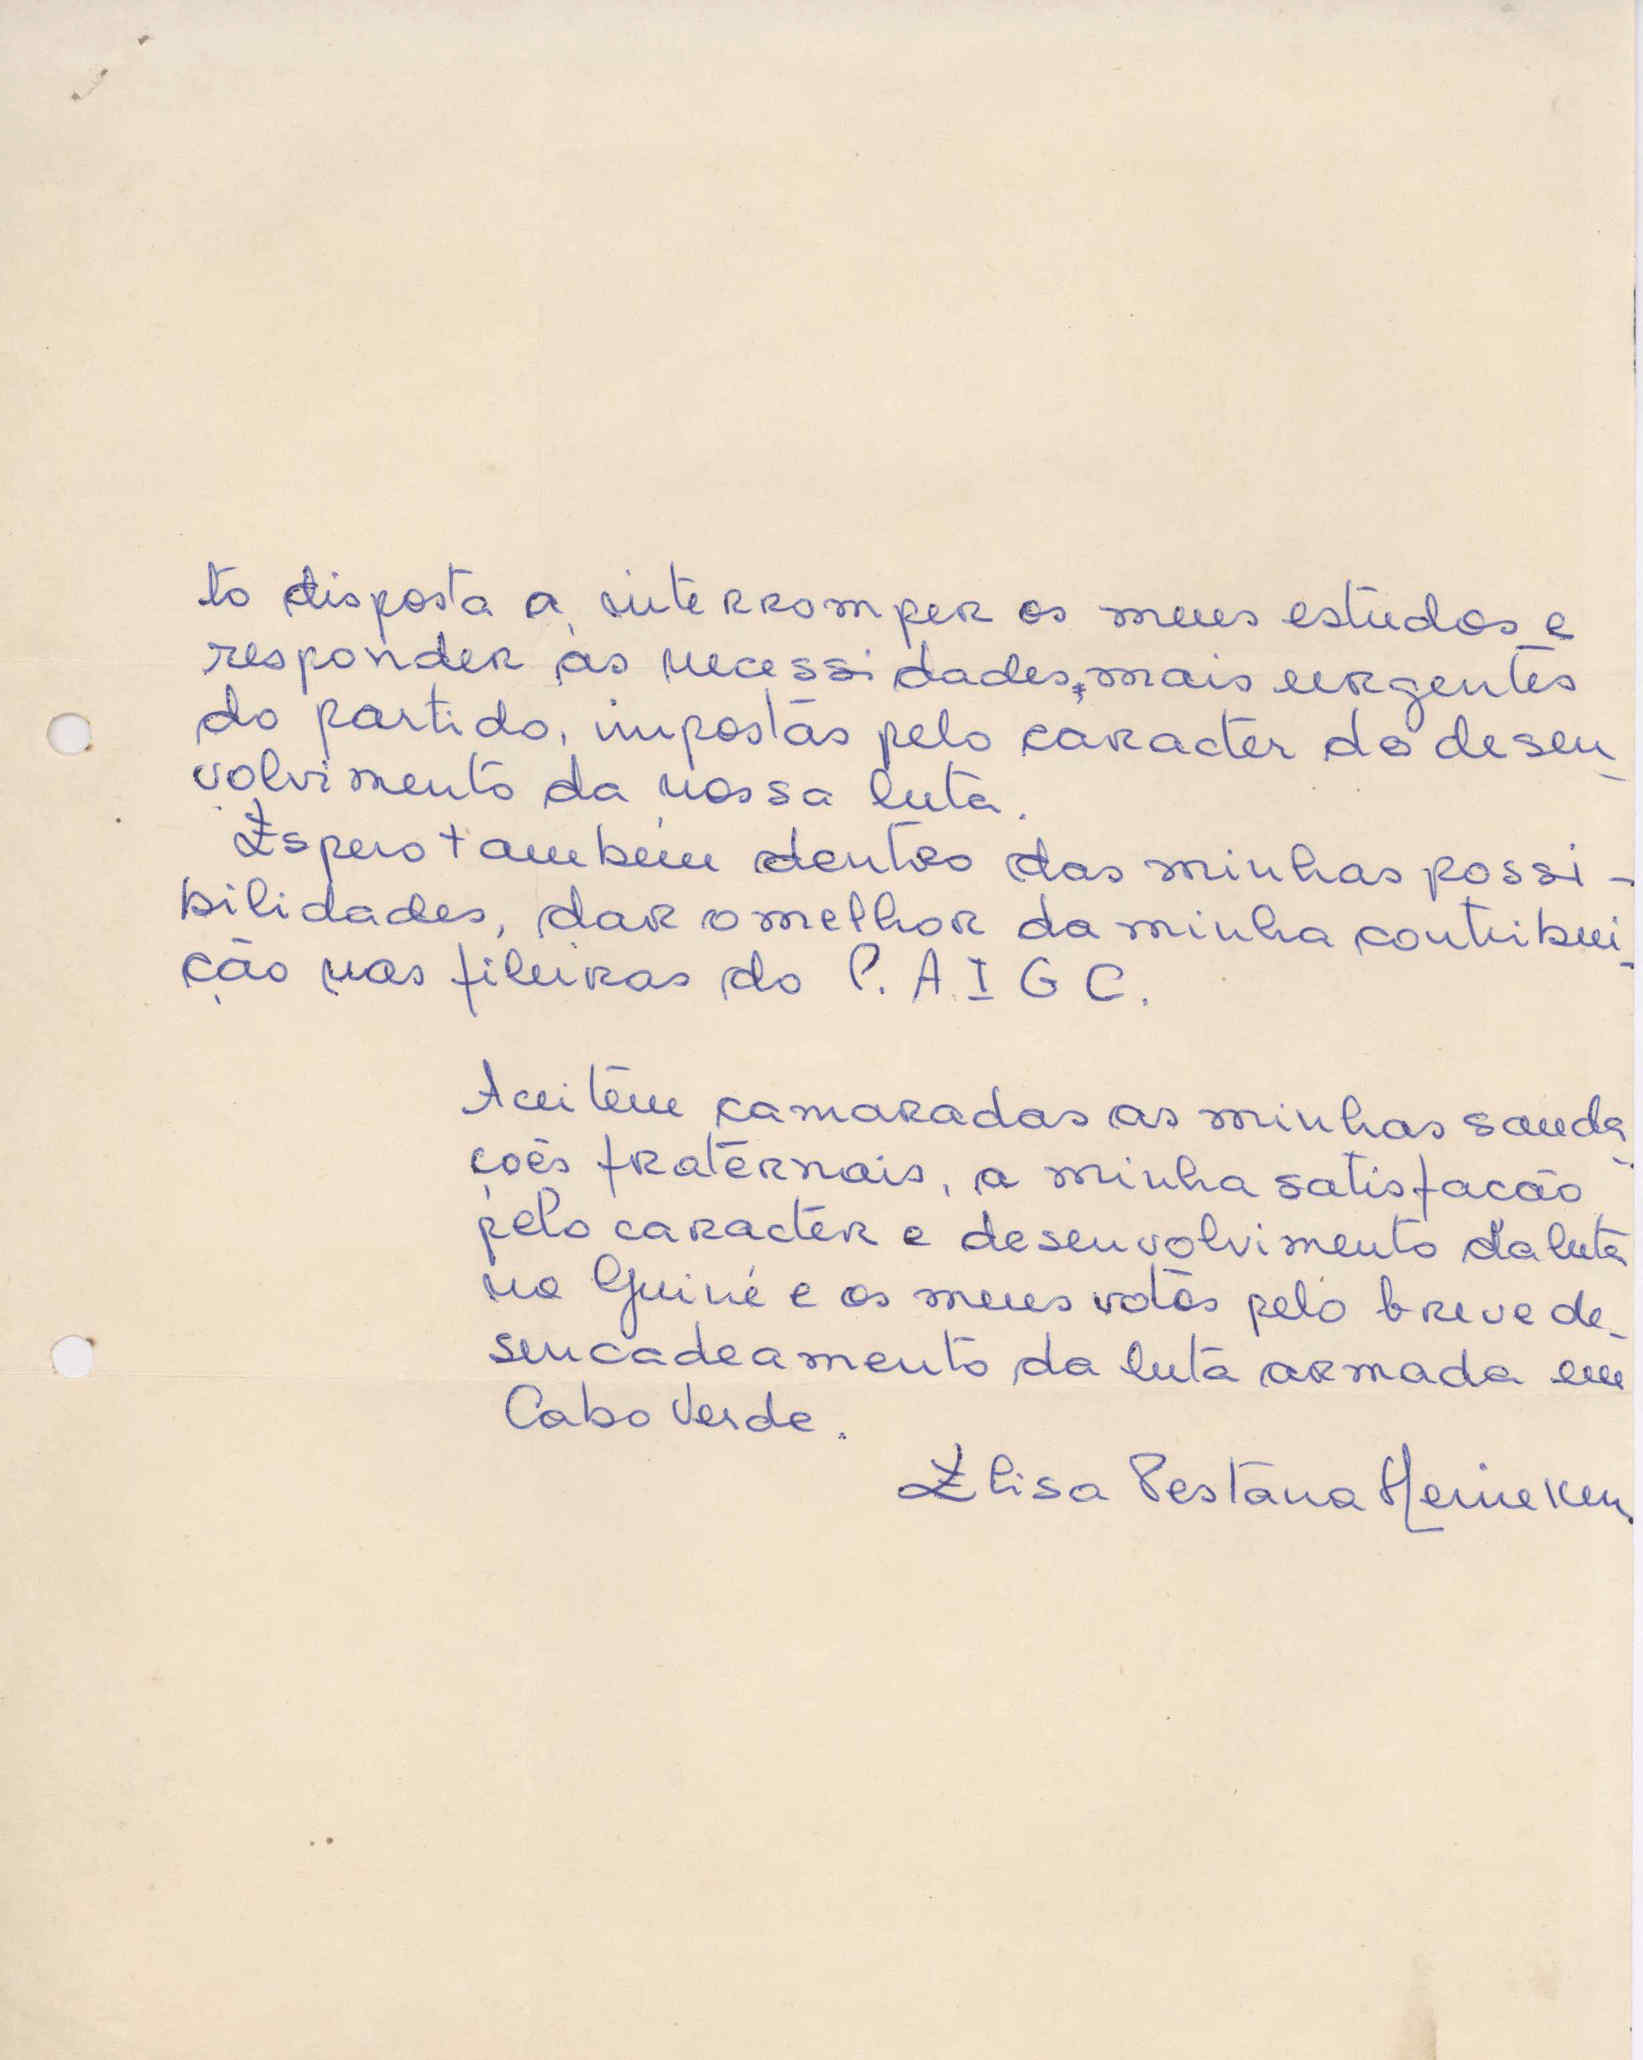 to disposta a interromper os meus estudos e
responder às necessidades, mais urgentes
do partido, impostas pelo caracter do desen-
volvimento da nossa luta.
Espero também dentro das minhas possi-
bilidades, dar o melhor da minha contribui-
ção nas fileiras do P. A. I G C.
Aceitem camaradas as minhas sauda-
çoẽs fraternais, a minha satisfacão
pelo caracter e desenvolvimento da luta
na Guiné e os meus votos pelo breve de-
sencadeamento da luta armada em
Cabo Verde.
Elisa Pestana Heineken.